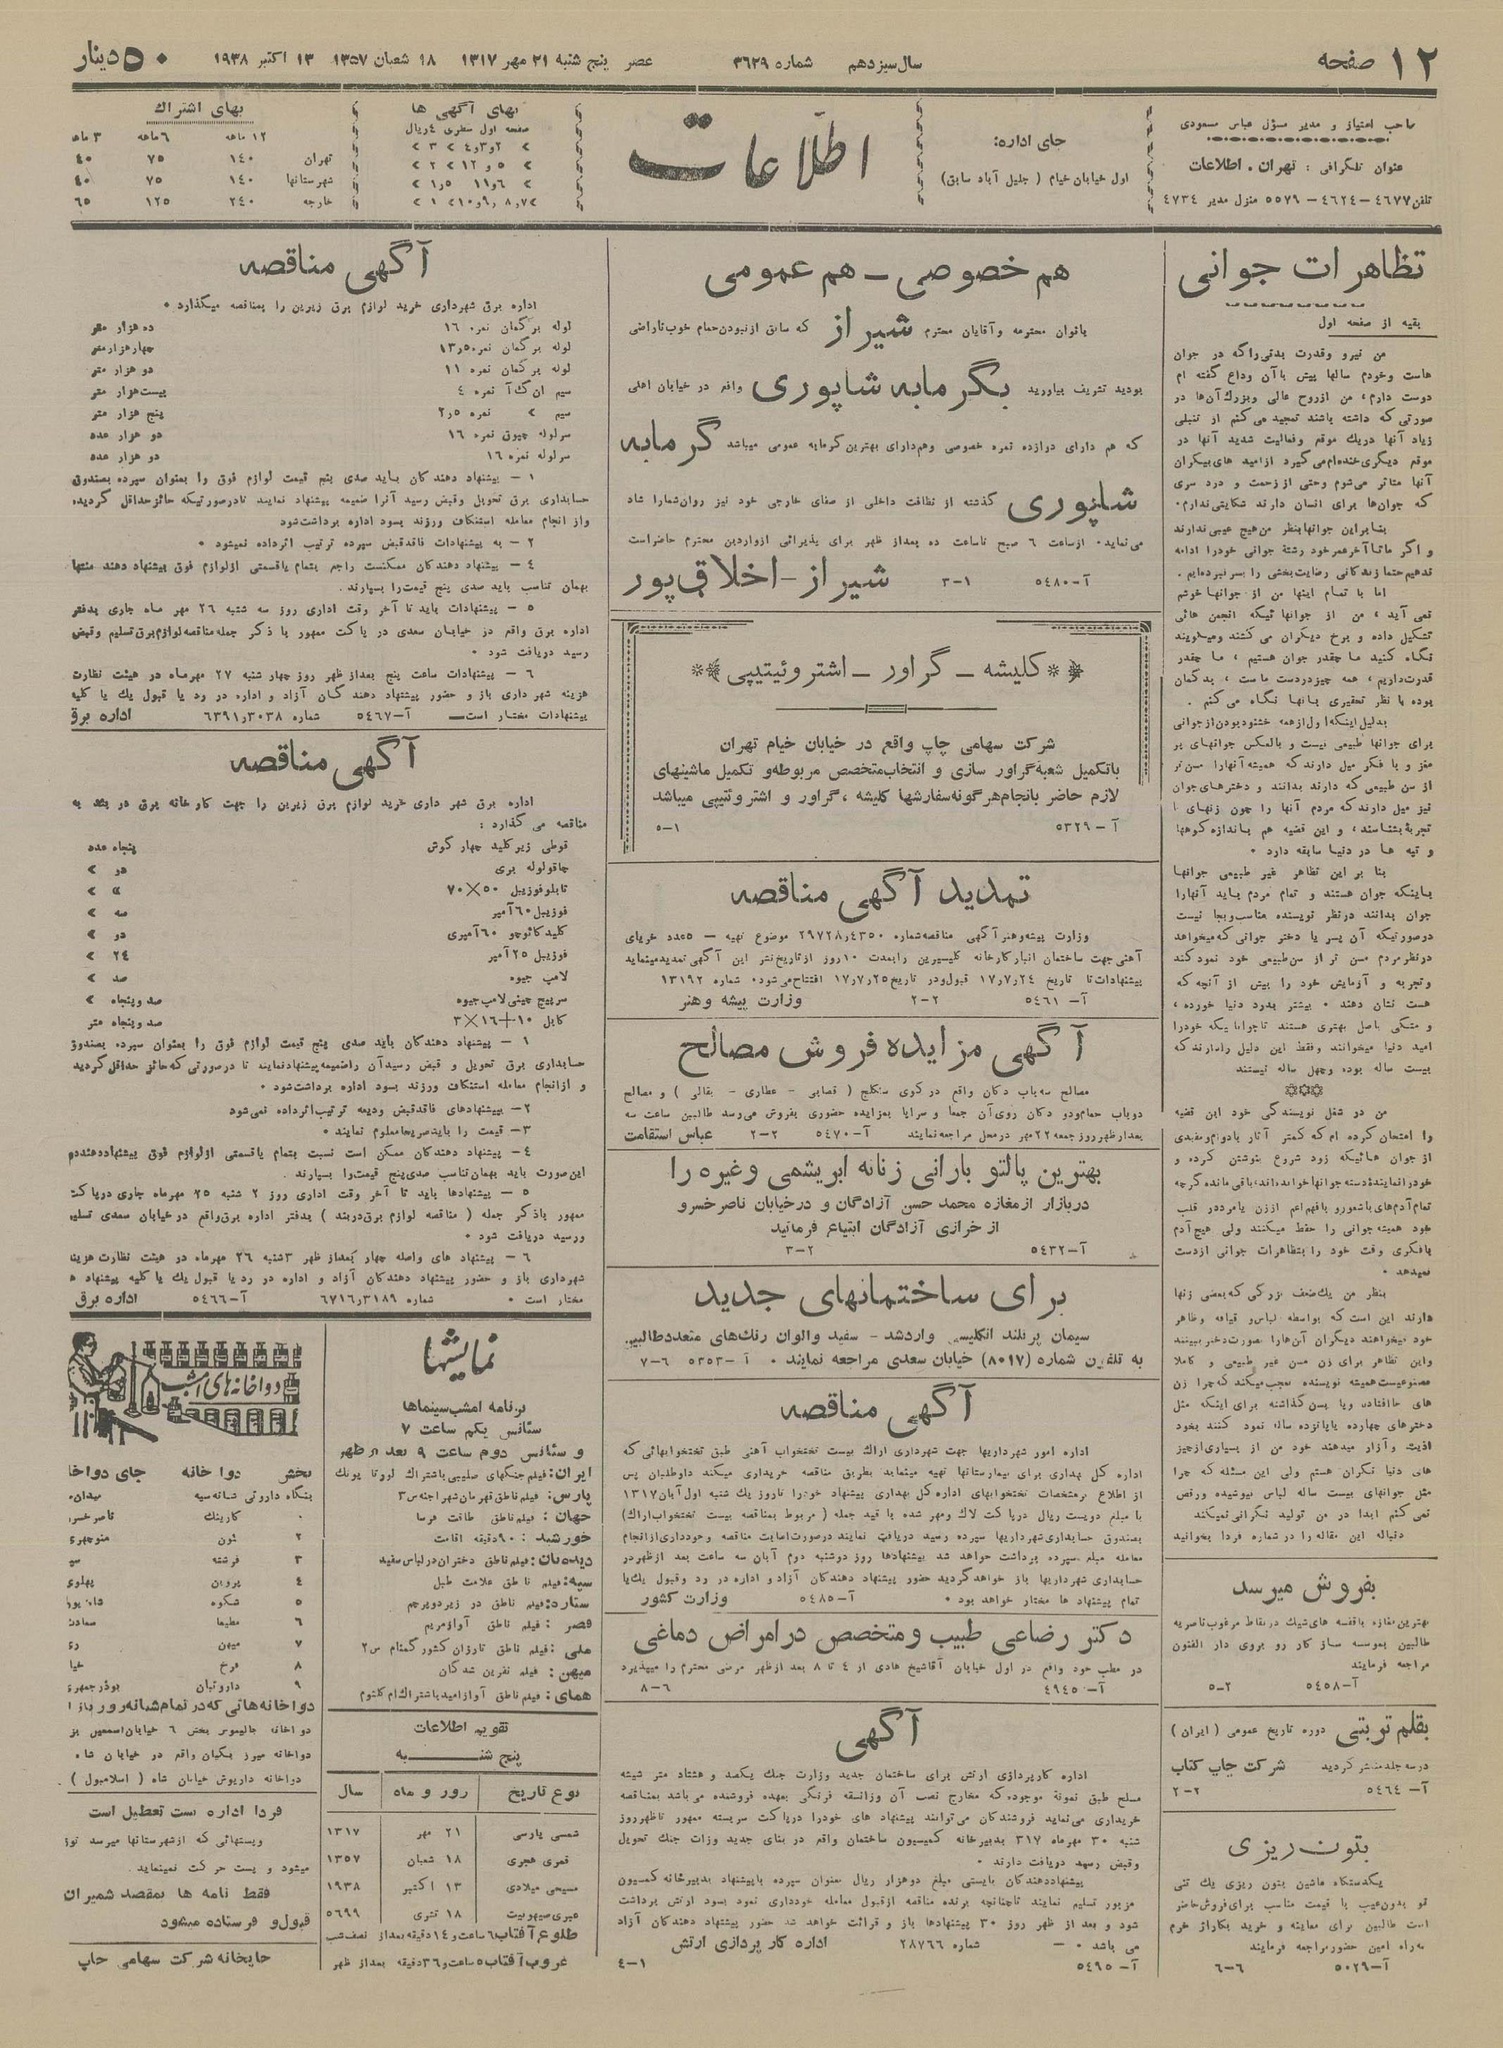 ۱۲ صفحه
سال سیزدهم شماره ۳۶۲۹ عصر پنج شنبه ۲۱ مهر ۱۳۱۷ ۱۸ شعبان ۱۳۵۷ ۱۳ اکتبر ۱۹۳۸
۵۰ دینار
صاحب امتیاز و مدیر مسؤل عباس مسعودی
عنوان تلگرافی : تهران . اطلاعات
تلفن ۴۶۷۷ - ۴۶۲۴ - ۵۵۷۹ منزل مدیر ۴۷۳۴
جای اداره:
اول خیابان خیام ( جلیل آباد سابق )
اطلاعات
بهای آگهی ها
صفحه اول سطری ۴ ریال
بهای اشتراك
۱۲ ماهه ۶ ماهه ۳ ماهه
تهران ۱۴۰ ۷۵ ۴۰
شهرستانها ۱۴۰ ۷۵ ۴۰
خارجه ۲۴۰ ۱۲۵ ۶۵
تظاهرات جوانی
بقیه از صفحه اول
من نیرو وقدرت بدنی راکه در جوان
هاست وخودم سالها پیش باآن وداع گفته ام
دوست دارم، من ازروح عالی وبزرگ آن‌ها در
صورتی که داشته باشند تمجید می‌کنم از تنبلی
زیاد آنها دریك موقع وفعالیت شدید آنها در
موقع دیگری خنده‌ام می گیرد ازامید های بیکران
آنها متاثر می‌شوم وحتی از زحمت و درد سری
که جوان‌ها برای انسان دارند شکایتی ندارم.
بنابراین جوانها بنظر من هیچ عیبی ندارند
و اگر ماتا آخر عمر خود رشتهٔ جوانی خودرا ادامه
ندهیم حتما زندگانی رضایت بخشی را بسر نبرده‌ایم .
اما با تمام اینها من از جوانها خوشم
نمی آید ، من از جوانها ئیکه انجمن هائی
تشکیل داده و برخ دیگران می کشند ومیگویند
نگاه کنید ما چقدر جوان هستیم ، ما چقدر
قدرت داریم ، همه چیز در دست ماست ، بدگمان
بوده با نظر تحقیری بانها نگاه می کنم .
بدلیل اینکه اول از همه خشنود بودن از جوانی
برای جوانها طبیعی نیست و بالعکس جوانهای پر
مغز و با فکر میل دارند که همیشه آنهارا مسن تر
از سن طبیعی که دارند بدانند و دخترهای جوان
نیز میل دارند که مردم آنها را چون زنهای با
تجربهٔ بشناسند، و این قضیه هم باندازه کوهها
و تپه ها در دنیا سابقه دارد .
بنا بر این تظاهر غیر طبیعی جوانها
باینکه جوان هستند و تمام مردم باید آنهارا
جوان بدانند درنظر نویسنده مناسب وبجا نیست
درصورتیکه آن پسر یا دختر جوانی که میخواهد
درنظر مردم مسن تر از سن طبیعی خود نمود کند
وتجربه و آزمایش خود را بیش از آنچه که
هست نشان دهند . بیشتر بدرد دنیا خورده ،
امید دنیا میخوانند وفقط این دلیل رادارند که
بیست ساله بوده وچهل ساله نیستند
من در شغل نویسندگی خود این قضیه
را امتحان کرده ام که کمتر آثار بادوام ومفیدی
از جوان هائیکه زود شروع بنوشتن کرده و
خود همیشه جوانی را حفظ میکنند ولی هیچ آدم
بافکری وقت خود را بتظاهرات جوانی ازدست
نمیدهد .
بنظر من یك ضعف بزرگی که بعضی زنها
دارند این است که بواسطه لباس و قیافه وظاهر
خود میخواهند دیگران آن‌هارا بصورت دختر ببینند
واین تظاهر برای زن مسن غیر طبیعی و کاملا
مصنوعیست همیشه نویسنده تعجب میکند که چرا زن
دخترهای چهارده یا پانزده ساله نمود کنند بخود
اذیت و آزار میدهند خود من از بسیاری از چیز
های دنیا نگران هستم ولی این مسئله که چرا
مثل جوانهای بیست ساله لباس نپوشیده ورقص
نمی کنم ابدا در من تولید نگرانی نمیکند
دنباله این مقاله را در شماره فردا بخوانید
بفروش میرسد
بهترین مغازه باقفسه های شیك درنقاط مرغوب ناصریه
طالبین بموسسه ساز کار رو بروی دار الفنون
مراجعه فرمایند
آ-۵۴۵۸ ۲-۵
بقلم تربتی دوره تاریخ عمومی ( ایران )
درسه جلد منتشر گردید شرکت چاپ کتاب
آ- ۵۴۶۴ ۲-۲
بتون ریزی
یکدستگاه ماشین بتون ریزی یك تنی
نو بدون عیب با قیمت مناسب برای فروش حاضر
است طالبین برای معاینه و خرید بکاراژ خرم
سه‌راه امین حضور مراجعه فرمایند
آ-۵۰۲۹ ۶-۶
هم خصوصی - هم عمومی
بانوان محترمه وآقایان محترم شیراز که سابق ازنبودن حمام خوب ناراضی
بودید تشریف بیاورید بگرمابه شاپوری واقع در خیابان اهلی
که هم دارای دوازده نمره خصوصی وهم دارای بهترین گرمابه عمومی میباشد گرمابه
شاپوری گذشته از نظافت داخلی از صفای خارجی خود نیز روان شمارا شاد
می نماید. ازساعت ۶ صبح تاساعت ده بعداز ظهر برای پذیرائی ازواردین محترم حاضراست
آ-۵۴۸۰ ۱-۳ شیراز-اخلاق پور
کلیشه - گراور - اشتروئیتیپی
شرکت سهامی چاپ واقع در خیابان خیام تهران
باتکمیل شعبهٔ گراور سازی و انتخاب متخصص مربوطه و تکمیل ماشینهای
لازم حاضر بانجام هر گونه سفارشها کلیشه ، گراور و اشتروئتیپی میباشد
آ- ۵۳۲۹ ۱-۵
تمدید آگهی مناقصه
وزارت پیشه وهنر آگهی مناقصه شماره ۴۳۵۰ر۲۹۷۲۸ موضوع تهیه - ۵ عدد خرپای
آهنی جهت ساختمان انبار کارخانه گلیسیرین را بمدت ۱۰ روز از تاریخ نشر این آگهی تمدید مینماید
پیشنهادات تا تاریخ ۲۴ر۷ر۱۷ قبول و در تاریخ ۲۵ر۷ر۱۷ افتتاح می شود. شماره ۱۳۱۹۲
آ- ۵۴۶۱ ۲-۲ وزارت پیشه وهنر
آگهی مزایده فروش مصالح
مصالح سه باب دکان واقع در کوی سنگلج ( قصابی - عطاری - بقالی ) و مصالح
دوباب حمام ودو دکان روی آن جمعا و سرایا بمزایده حضوری بفروش می‌رسد طالبین ساعت سه
بعداز ظهر روز جمعه ۲۲ مهر درمحل مراجعه نمایند آ-۵۴۷۰ ۲-۲ عباس استقامت
بهترین پالتو بارانی زنانه ابریشمی وغیره را
دربازار از مغازه محمد حسن آزادگان و درخیابان ناصر خسرو
از خرازی آزادگان ابتیاع فرمائید
آ-۵۴۳۲ ۲-۳
برای ساختمانهای جدید
سیمان پرتلند انگلیسی وارد شد - سفید والوان رنك های متعدد طالبین
به تلفون شماره (۸۰۱۷) خیابان سعدی مراجعه نمایند . آ-۵۳۵۳ ۶-۷
آگهی مناقصه
اداره امور شهرداریها جهت شهرداری اراك بیست تختخواب آهنی طبق تختخوابهائی که
اداره کل بهداری برای بیمارستانها تهیه مینماید بطریق مناقصه خریداری میکند داوطلبان پس
از اطلاع برمشخصات تختخوابهای اداره کل بهداری پیشنهاد خودرا تاروز یك شنبه اول آبان ۱۳۱۷
با مبلغ دویست ریال درپاکت لاك ومهر شده با قید جمله ( مربوط بمناقصه بیست تختخواب اراك)
بصندوق حسابداری شهرداریها سپرده رسید دریافت نمایند درصورت اصابت مناقصه و خودداری از انجام
معامله مبلغ سپرده برداشت خواهد شد پیشنهادها روز دوشنبه دوم آبان سه ساعت بعد ازظهر در
حسابداری شهرداریها باز خواهد گردید حضور پیشنهاد دهندگان آزاد و اداره در رد و قبول یك یا
تمام پیشنهاد ها مختار خواهد بود . آ-۵۴۸۵ وزارت کشور
دکتر رضاعی طبیب و متخصص در امراض دماغی
در مطب خود واقع در اول خیابان آقاشیخ هادی از ۴ تا ۸ بعد از ظهر مرضی محترم را میپذیرد
آ-۴۹۴۵ ۶-۸
آگهی
اداره کارپردازی ارتش برای ساختمان جدید وزارت جنك یکصد و هشتاد متر شیشه
مسلح طبق نمونهٔ موجوده که مخارج نصب آن وزانسقه فرنگی بعهده فروشنده می باشد بمناقصه
خریداری می نماید فروشندگان می توانند پیشنهاد های خودرا درپاکت سربسته ممهور تاظهر روز
شنبه ۳۰ مهرماه ۳۱۷ بدبیرخانه کمیسیون ساختمان واقع در بنای جدید وزات جنك تحویل
وقبض رسید دریافت دارند .
پیشنهاددهندگان بایستی مبلغ دوهزار ریال بعنوان سپرده باپیشنهاد بدبیرخانه کمیسیون
مزبور تسلیم نمایند تاچنانچه برنده مناقصه ازقبول معامله خودداری نمود بسود ارتش برداشت
شود و بعد از ظهر روز ۳۰ پیشنهادها باز و قرائت خواهد شد حضور پیشنهاد دهندگان آزاد
می باشد . - شماره ۲۸۷۶۶ اداره کار پردازی ارتش
آ- ۵۴۹۵ ۱-۴
آگهی مناقصه
اداره برق شهرداری خرید لوازم برق زیرین را بمناقصه میگذارد .
لوله برگمان نمره ۱۶ ده هزار متر
لوله برگمان نمره ۱۳٫۵ چهار هزار متر
لوله برگمان نمره ۱۱ دو هزار متر
سیم ان ك آ نمره ۴ بیست هزار متر
سیم » نمره ۲٫۵ پنج هزار متر
سرلوله چپوق نمره ۱۶ دو هزار عدد
سرلوله نمره ۱۶ دو هزار عدد
۱ - پیشنهاد دهندگان باید صدی پنج قیمت لوازم فوق را بعنوان سپرده بصندوق
حسابداری برق تحویل وقبض رسید آنرا ضمیمه پیشنهاد نمایند تادرصورتیکه حائز حداقل گردیده
واز انجام معامله استنکاف ورزند بسود اداره برداشت شود
۲ - به پیشنهادات فاقد قبض سپرده ترتیب اثر داده نمیشود .
۴ - پیشنهاد دهندگان ممکنست راجع بتمام یاقسمتی ازلوازم فوق پیشنهاد دهند منتها
بهمان تناسب باید صدی پنج قیمت را بسپارند .
۵ - پیشنهادات باید تا آخر وقت اداری روز سه شنبه ۲۶ مهر ماه جاری بدفتر
اداره برق واقع در خیابان سعدی در پاکت ممهور با ذکر جمله مناقصه لوازم برق تسلیم وقبض
رسید دریافت شود .
۶ - پیشنهادات ساعت پنج بعداز ظهر روز چهار شنبه ۲۷ مهرماه در هیئت نظارت
هزینه شهرداری باز و حضور پیشنهاد دهندگان آزاد و اداره در رد یا قبول یك یا کلیه
پیشنهادات مختار است- آ-۵۴۶۷ شماره ۳۰۳۸ر۶۳۹۱ اداره برق
آگهی مناقصه
اداره برق شهر داری خرید لوازم برق زیرین را جهت کارخانه برق دربند به
مناقصه می گذارد :
قوطی زیر کلید چهار گوش پنجاه عدد
چاقو لوله بری دو »
تابلو فوزیبل ۵۰×۷۰
فوزیبل ۶۰ آمپر سه »
کلید کائوچو ۶۰ آمپری دو »
فوزیبل ۲۵ آمپر ۲۴ »
لامپ جیوه صد »
سرپیچ چینی لامپ جیوه صد و پنجاه »
کابل ۱۰+۱۶×۳ صد و پنجاه متر
۱ - پیشنهاد دهندگان باید صدی پنج قیمت لوازم فوق را بعنوان سپرده بصندوق
حسابداری برق تحویل و قبض رسید آن راضمیمه پیشنهاد نمایند تا درصورتی که حائز حداقل گردید
و ازانجام معامله استنکاف ورزند بسود اداره برداشت شود .
۲- بپیشنهادهای فاقد قبض ودیعه ترتیب اثر داده نمی شود
۳- قیمت را باید صریحا معلوم نمایند .
۴- پیشنهاد دهندگان ممکن است نسبت بتمام یاقسمتی ازلوازم فوق پیشنهاد دهند در
این صورت باید بهمان تناسب صدی پنج قیمت را بسپارند .
۵ - پیشنهادها باید تا آخر وقت اداری روز ۲ شنبه ۲۵ مهرماه جاری در پاکت
ممهور باذکر جمله ( مناقصه لوازم برق دربند ) بدفتر اداره برق واقع در خیابان سعدی
ورسید دریافت شود .
۶ - پیشنهاد های واصله چهار بعداز ظهر ۳شنبه ۲۶ مهرماه در هیئت نظارت هزینه
شهرداری باز و حضور پیشنهاد دهندگان آزاد و اداره در رد یا قبول یك یا کلیه پیشنهاد ها
مختار است . شماره ۳۱۸۹ر۶۷۱۶ آ-۵۴۶۶ اداره برق
نمایشها
برنامه امشب سینماها
سئانس یکم ساعت ۷
و سئانس دوم ساعت ۹ بعد از ظهر
ایران: فیلم جنگهای صلیبی باشتراك لورتا یونك
پارس: فیلم ناطق قهرمان شهر اجنه س۳
جهان: فیلم ناطق طاقت فرسا
خورشید : ۹۰ دقیقه اقامت
دیده‌بان: فیلم ناطق دختران در لباس سفید
سپه: فیلم ناطق علامت طبل
ستاره: فیلم ناطق در زیر دو پرچم
قصر : فیلم ناطق آوازمریم
ملی: فیلم ناطق تارزان کشور گمنام س۲
میهن: فیلم نفرین شدگان
همای: فیلم ناطق آواز امید باشتراك ام کلثوم
تقویم اطلاعات
پنج شنبه
نوع تاریخ روز و ماه سال
شمسی پارسی ۲۱ مهر ۱۳۱۷
قمری هجری ۱۸ شعبان ۱۳۵۷
مسیحی میلادی ۱۳ اکتبر ۱۹۳۸
عبری صیهونیت ۱۸ تشری ۵۶۹۹
طلوع آفتاب ۶ ساعت و ۱۴ دقیقه بعداز نصف شب
غروب آفتاب ۵ ساعت و ۳۶ دقیقه بعداز ظهر
دواخانه‌های امشب
بخش دواخانه جای دواخا
بنگاه داروئی شانه سیه میدان
۰ کارینك ناصر خسرو
۲ نون منوچهری
۳ فرشته سپه
۴ پروین پهلوی
۵ شکوه شاه پور
۶ مطیعا سعادت
۷ میهن ری
۸ فرخ خیا
۹ داروئیان بوذرجمهری
دواخانه هائی که در تمام شبانه روز باز
دواخانه جالینوس بخش ۶ خیابان اسمعیل بز
دواخانه میرزیکیان واقع در خیابان شاه
دواخانه داریوش خیابان شاه ( اسلامبول )
فردا اداره پست تعطیل است
وپستهائی که ازشهرستانها میرسد توز
میشود و پست حرکت نمینماید .
فقط نامه ها بمقصد شمیران
قبول و فرستاده میشود
چاپخانه شرکت سهامی چاپ